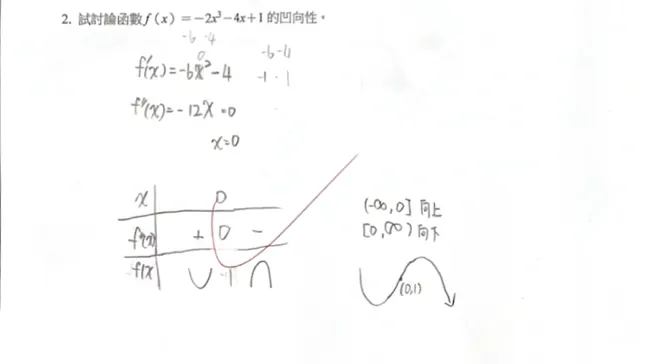 2. 試討論函數 f(x) = -2x³-4x+1 的凹向性。
-6 -4
0
-6-4
f'(x) = -6x²-4
-1 · 1
f''(x) = -12x = 0
x=0
x 0
f''(x) + 0 -
f(x -1
(-∞, 0] 向上
[0, ∞) 向下
(0,1)